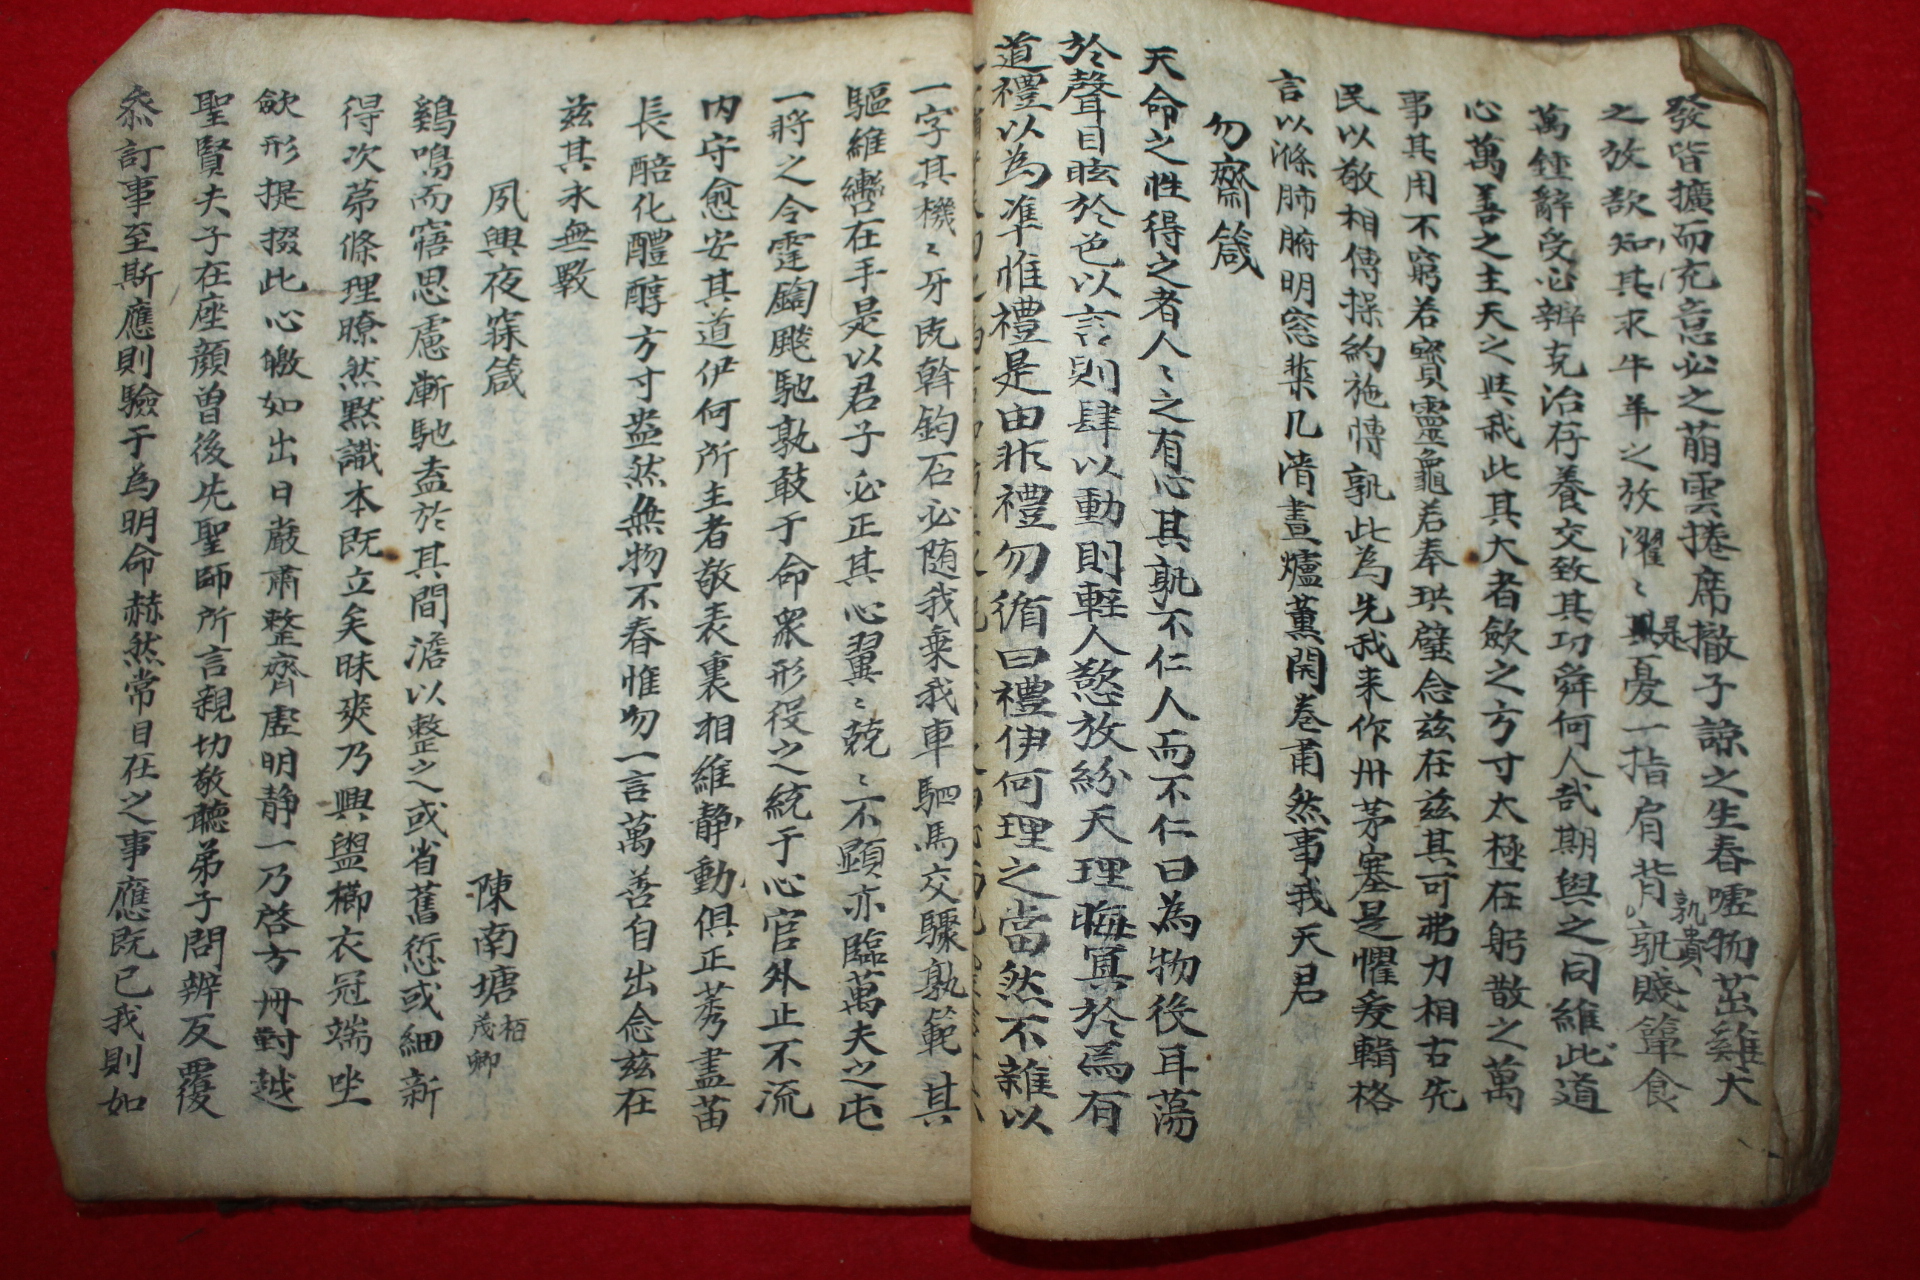 發皆擴而充意必之萌雲捲席撤子諒之生春噓物茁雞犬
之放欲知其求牛羊之放濯〻是憂一指肩背孰貴孰賤簞食
萬鍾辭受必辨克治存養交致其功舜何人哉期與之同維此道
心萬善之主天之與我此其大者斂之方寸太極在躬散之萬
事其用不窮若寶靈龜若奉珙璧念玆在玆其可弗力相古先
民以敬相傳操約施博孰此為先我来作州茅塞是懼爰輯格
言以滌肺腑明窓棐几清晝爐薰開巻肅然事我天君
勿齋箴
天命之性得之者人〻之有心其孰不仁人而不仁曰為物役耳蕩
於聲目眩於色以言則肆以動則輕人慾放紛天理晦冥於焉有
道禮以為準惟禮是由非禮勿循曰禮伊何理之當然不雜以
一字其機〻牙既斡鈞石必随我乗我車駟馬交驟孰範其
驅維轡在手是以君子必正其心翼〻兢〻不顯亦臨萬夫之屯
一將之令霆鐗飈馳孰敢于命衆形役之統于心官外止不流
内守愈安其道伊何所主者敬表裏相維静動俱正莠盡苗
長醅化醴醇方寸盎然無物不春惟勿一言萬善自出念玆在
玆其永無斁
夙興夜寐箴 陳南塘 栢 茂卿
鷄鳴而寤思慮漸馳盍於其間澹以整之或省舊愆或紬新
得次第條理瞭然默識本既立矣昧爽乃興盥櫛衣冠端坐
斂形提掇此心皦如出日嚴肅整齊虚明静一乃啓方冊對越
聖賢夫子在座顔曾後先聖師所言親切敬聽弟子問辨反覆
叅訂事至斯應則驗于為明命赫然常目在之事應既已我則如